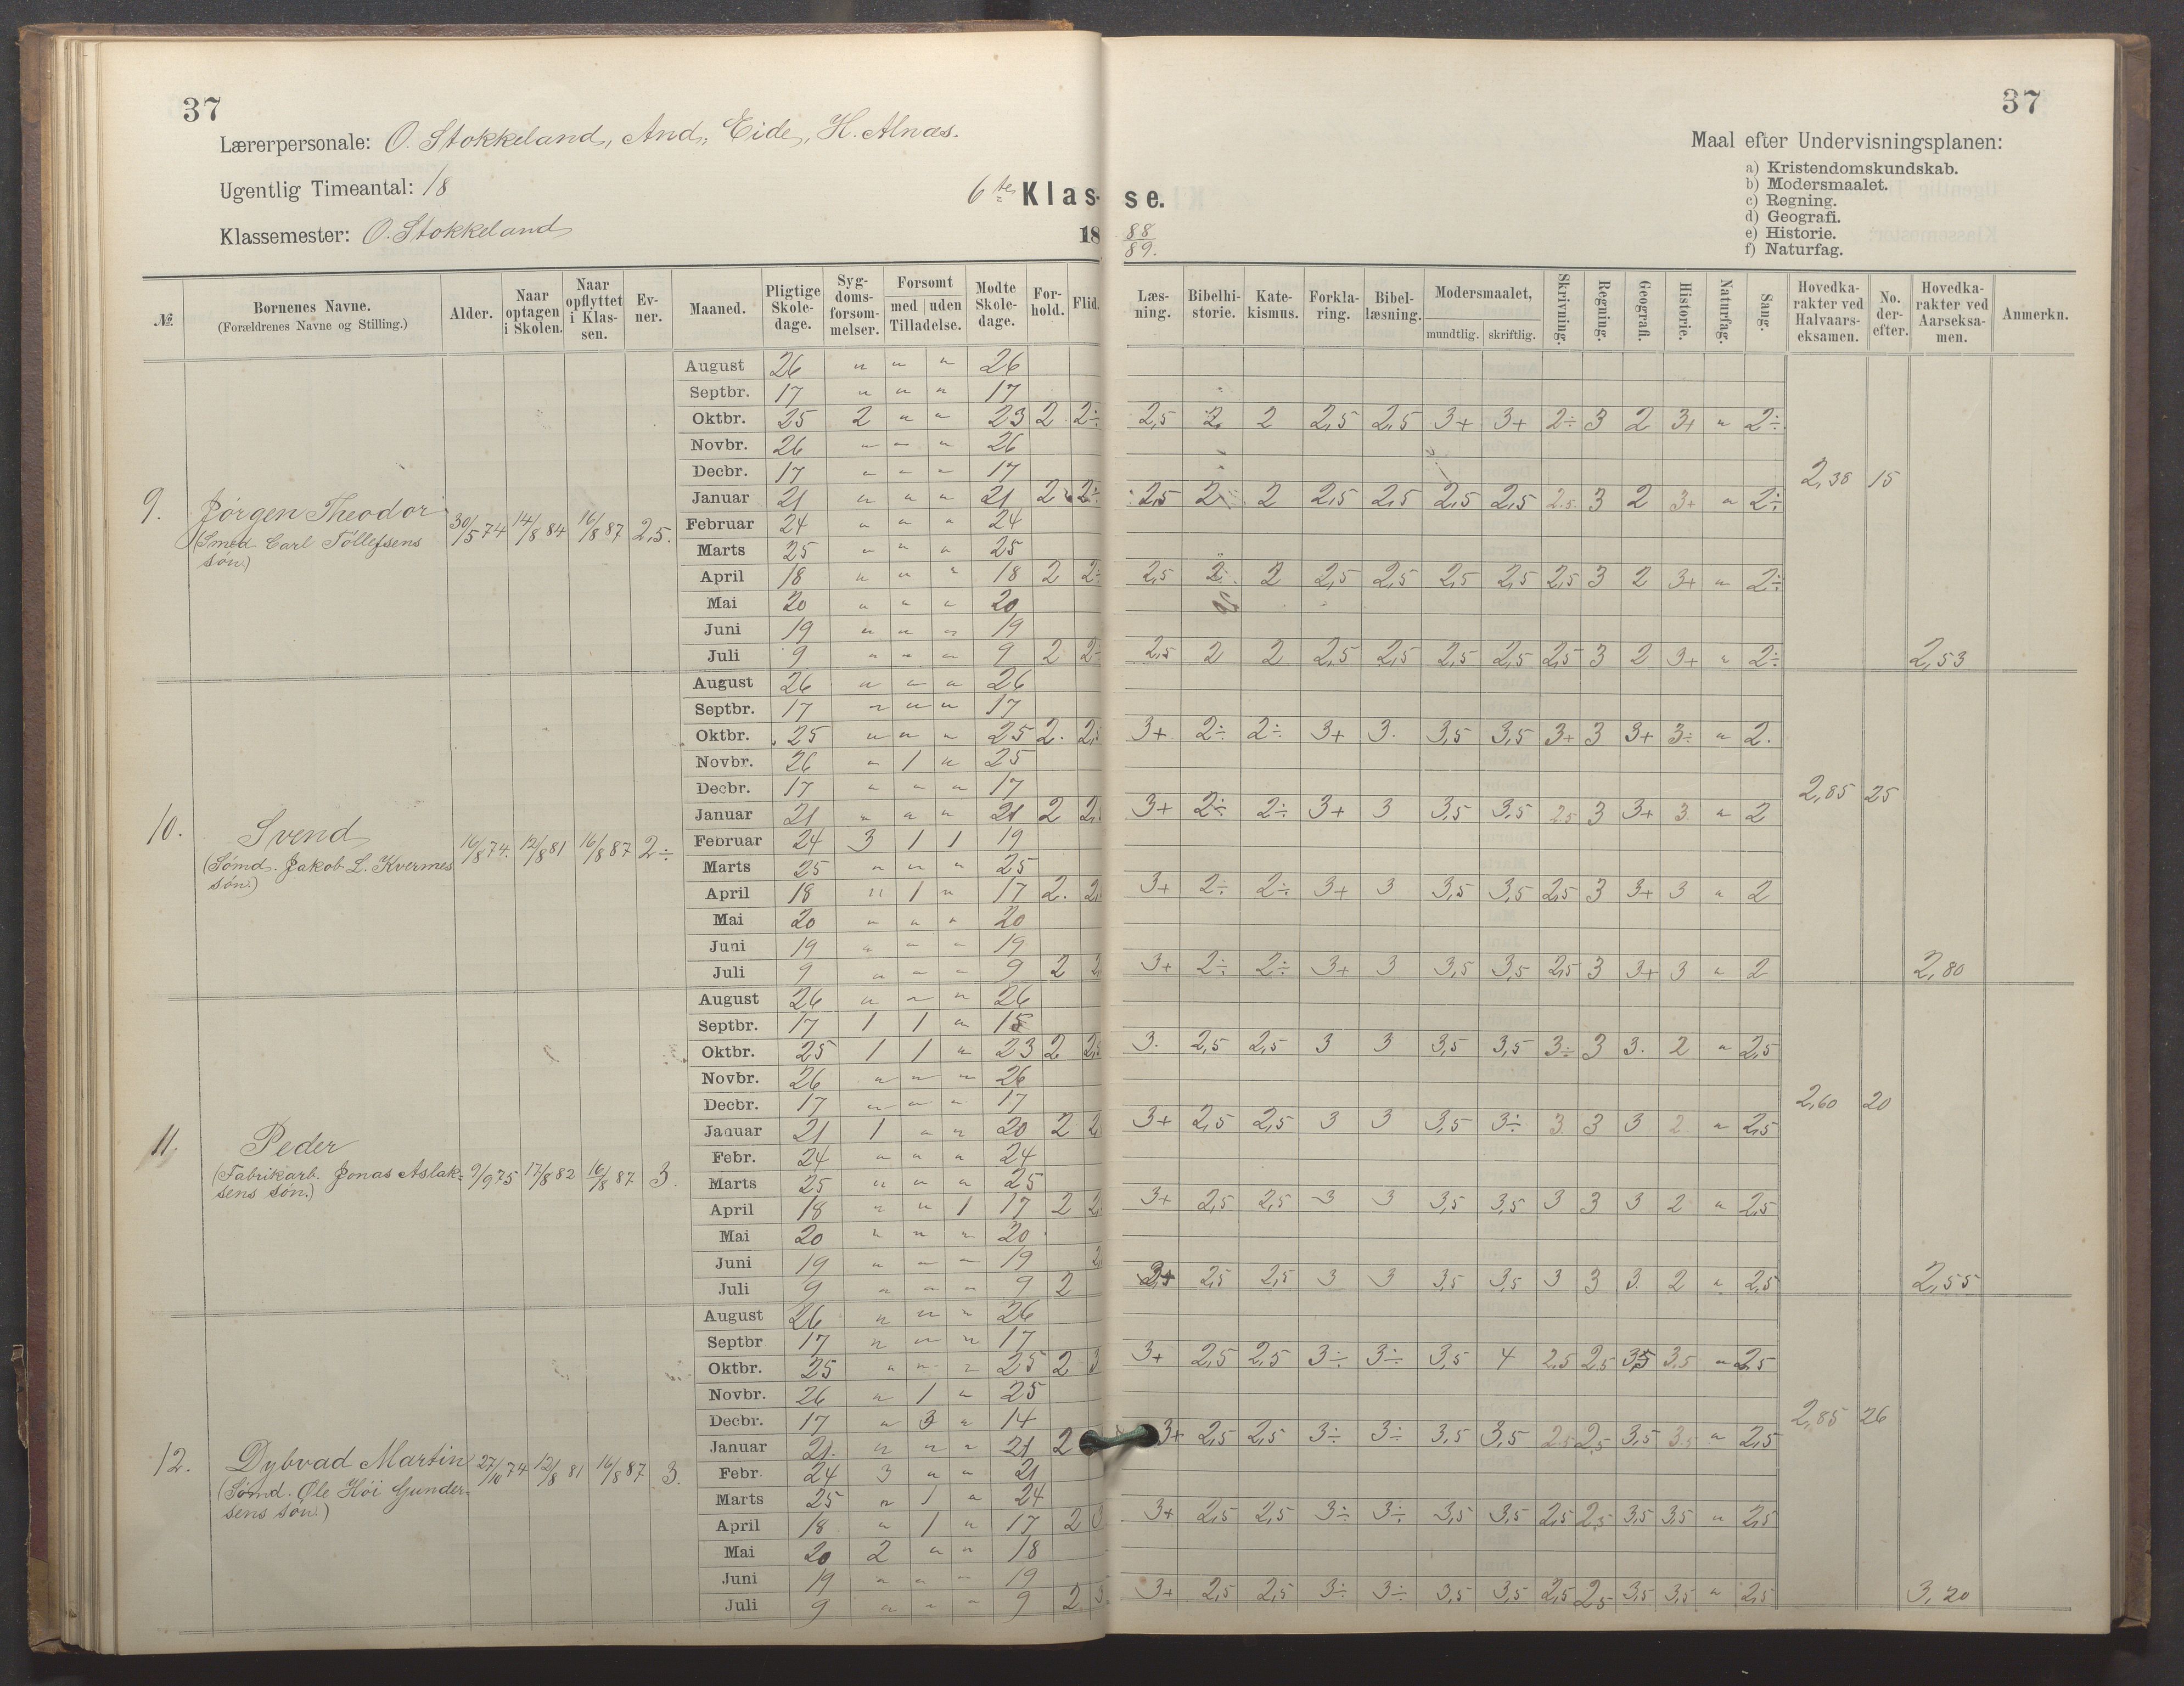 37
37
Lærerpersonale: O. Stokkeland, And. Eide, H. Alnæs.
Ugentlig Timeantal: 18
Klassemester: O. Stokkeland
6te Klas- se.
18 88/89.
Maal efter Undervisningsplanen:
a) Kristendomskundskab.
b) Modersmaalet.
c) Regning.
d) Geografi.
e) Historie.
f) Naturfag.
№. Bornenes Navne. (Forældrenes Navne og Stilling.) Alder. Naar optagen i Skolen. Naar opflyttet i Klassen. Evner. Maaned. Pligtige Skoledage. Sygdomsforsommelser. Forsomt med uden Tilladelse. Modte Skoledage. Forhold. Flid. Læsning. Bibelhistorie. Katekismus. Forklaring. Bibellæsning. Modersmaalet, mundtlig. skriftlig. Skrivning. Regning. Geografi. Historie. Naturfag. Sang. Hovedkarakter ved Halvaarseksamen. No. derefter. Hovedkarakter ved Aarseksamen. Anmerkn.
9. Jørgen Theodor
(Smed Carl Töllefsens
søn.)
30/5 74 14/8 84 16/8 87 2,5.
August 26 " " " 26
Septbr. 17 " " " 17
Oktbr. 25 2 " " 23 2 2÷ 2,5 2 2 2,5 2,5 3+ 3+ 2÷ 3 2 3+ " 2÷
Novbr. 26 " " " 26
Decbr. 17 " " " 17
2,38 15
Januar 21 " " " 21 2 2÷ 2,5 2 2 2,5 2,5 2,5 2,5 2,5 3 2 3+ " 2÷
Februar 24 " " " 24
Marts 25 " " " 25
April 18 " " " 18 2 2÷ 2,5 2 2 2,5 2,5 2,5 2,5 2,5 3 2 3+ " 2÷
Mai 20 " " " 20
Juni 19 " " " 19
Juli 9 " " " 9 2 2÷ 2,5 2 2 2,5 2,5 2,5 2,5 2,5 3 2 3+ " 2÷ 2,53
10. Svend
(Sømd. Jakob L. Kvermes
søn.)
16/8 74. 12/8 81 16/8 87 2÷
August 26 " " " 26
Septbr. 17 " " " 17
Oktbr. 25 " " " 25 2. 2,5 3+ 2÷ 2÷ 3+ 3. 3,5 3,5 3+ 3 3+ 3÷ " 2.
Novbr. 26 " 1 " 25
Decbr. 17 " " " 17
2,85 25
Januar 21 " " " 21 2 2, 3+ 2÷ 2÷ 3+ 3 3,5 3,5 2,5 3 3+ 3 " 2
Februar 24 3 1 1 19
Marts 25 " " " 25
April 18 " 1 " 17 2. 2, 3+ 2÷ 2÷ 3+ 3 3,5 3,5 2,5 3 3+ 3 " 2
Mai 20 " " " 20
Juni 19 " " " 19
Juli 9 " " " 9 2 2 3+ 2÷ 2÷ 3+ 3 3,5 3,5 2,5 3 3+ 3 " 2 2,80
11. Peder
(Fabrikarb. Jonas Aslak-
sens søn.)
9/9 75 17/8 82 16/8 87 3.
August 26 " " " 26
Septbr. 17 1 1 " 15
Oktbr. 25 1 1 " 23 2 2,5 3. 2,5 2,5 3 3 3,5 3,5 3÷ 3 3. 2 " 2,5
Novbr. 26 " " " 26
Decbr. 17 " " " 17
2,60 20
Januar 21 1 " " 20 2 2 3+ 2,5 2,5 3 3 3,5 3÷ 3 3 3 2 " 2,5
Febr. 24 " " " 24
Marts 25 " " " 25
April 18 " " 1 17 2 2, 3+ 2,5 2,5 3 3 3,5 3,5 3 3 3 2 " 2,5
Mai 20 " " " 20
Juni 19 " " " 19 2
Juli 9 " " " 9 2 2,5 2,5 3 3 3,5 3,5 3 3 3. 2 " 2,5 2,55
12. Dybvad Martin
(Sømd. Ole Höi Gunder-
sens søn.)
27/10 74 12/8 81 16/8 87 3.
August 26 " " " 26
Septbr 17 " " " 17
Oktbr. 25 " " " 25 2 3 3+ 2,5 2,5 3÷ 3÷ 3,5 4 2,5 2,5 3,5 3,5 " 2,5
Novbr. 26 " 1 " 25
Decbr. 17 " 3 " 14
2,85 26
Januar 21. " " " 21 2 3+ 2,5 2,5 3÷ 3÷ 3,5 3,5 2,5 2,5 3,5 3,5 " 2,5
Febr 24 3 " " 21
Marts 25 " 1 " 24
April 18 " 1 " 17 2 3 3+ 2,5 2,5 3÷ 3÷ 3,5 3,5 2,5 2,5 3,5 3,5 " 2,5
Mai 20 2 " " 18
Juni 19 " " " 19
Juli 9 " " " 9 2 3 3+ 2,5 2,5 3÷ 3÷ 3,5 3,5 2,5 2,5 3,5 3,5 " 2,5 3,20